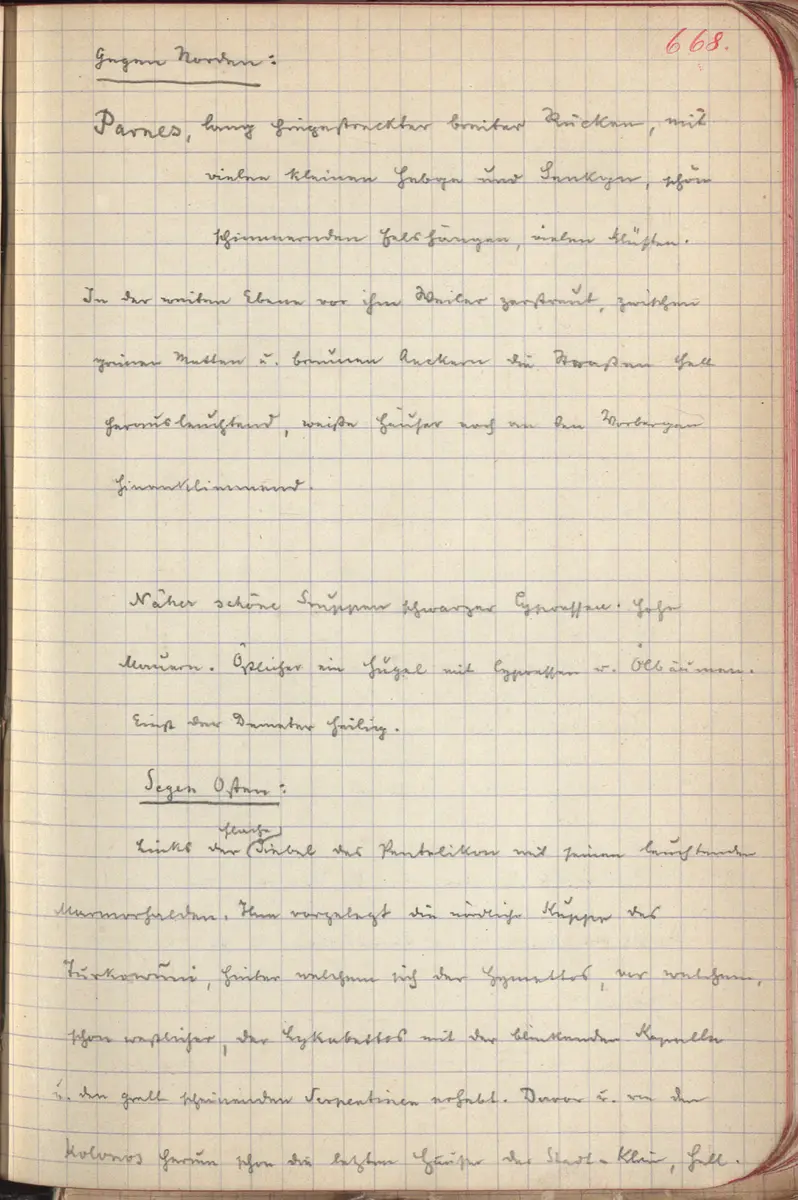 668.
Gegen Norden:
Parnes, lang hingestreckter breiter Rücken, mit
vielen kleinen Hebgn und Senkgn, schön
schimmernden Felshängen, vielen Klüften.
In der weiten Ebene vor ihm Weiler zerstreut, zwischen
grünen Matten u. braunen Aeckern die Straßen hell
herausleuchtend, weiße Häuser noch an den Vorbergen
hinanklimmend.
Näher schöne Gruppen schwarzer Cypressen. Hohe
Mauern. Östlicher ein Hügel mit Cypressen u. Ölbäumen.
Einst der Demeter heilig.
Gegen Osten:
flache
Links der Giebel des Pentelikon mit seinen leuchtenden
Marmorhalden. Ihm vorgelegt die nördliche Kuppe des
Turkowuni, hinter welchem sich der Hymettos, vor welchem,
schon westlicher, der Lykabettos mit der blinkenden Kapelle
u. den grell scheinenden Serpentinen erhebt. Davor u. um den
Kolonos herum schon die letzten Häuser der Stadt-, hell.